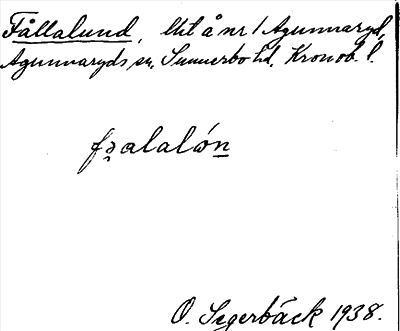 Fållalund, lht å nr 1 Agunnaryd,
Agunnaryds sn, Sunnerbo hd, Kronob. l.
fɜalalón
O. Segerbäck 1938.